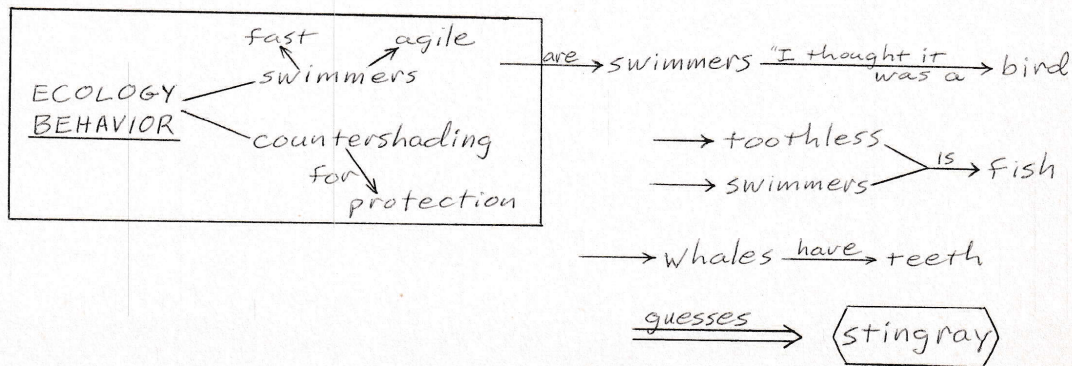 fast agile
swimmers
ECOLOGY
BEHAVIOR
countershading
for
protection
are swimmers "I thought it was a bird
toothless
swimmers
is fish
whales have teeth
guesses stingray